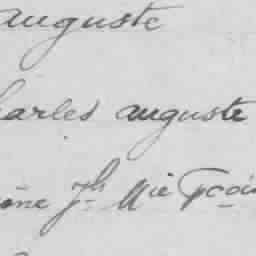 auguste
harles auguste
ène Jh Mie Fçois